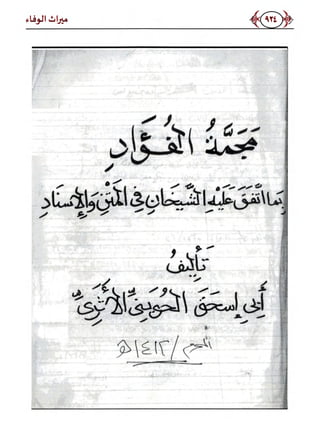 ميراث الوفاء
٩٢٤
مَجَمَّةُ الفُؤَادِ
بِمَا اتَّفَقَ عَلَيْهِ الشَّيْخَانِ فِي المَتْنِ وَالإِسْنَادِ
تَأْلِيفُ
أَبِي إِسْحَقَ الحُوَيْنِيِّ الأَثَرِيِّ
المحرم / ١٤١٢ هـ